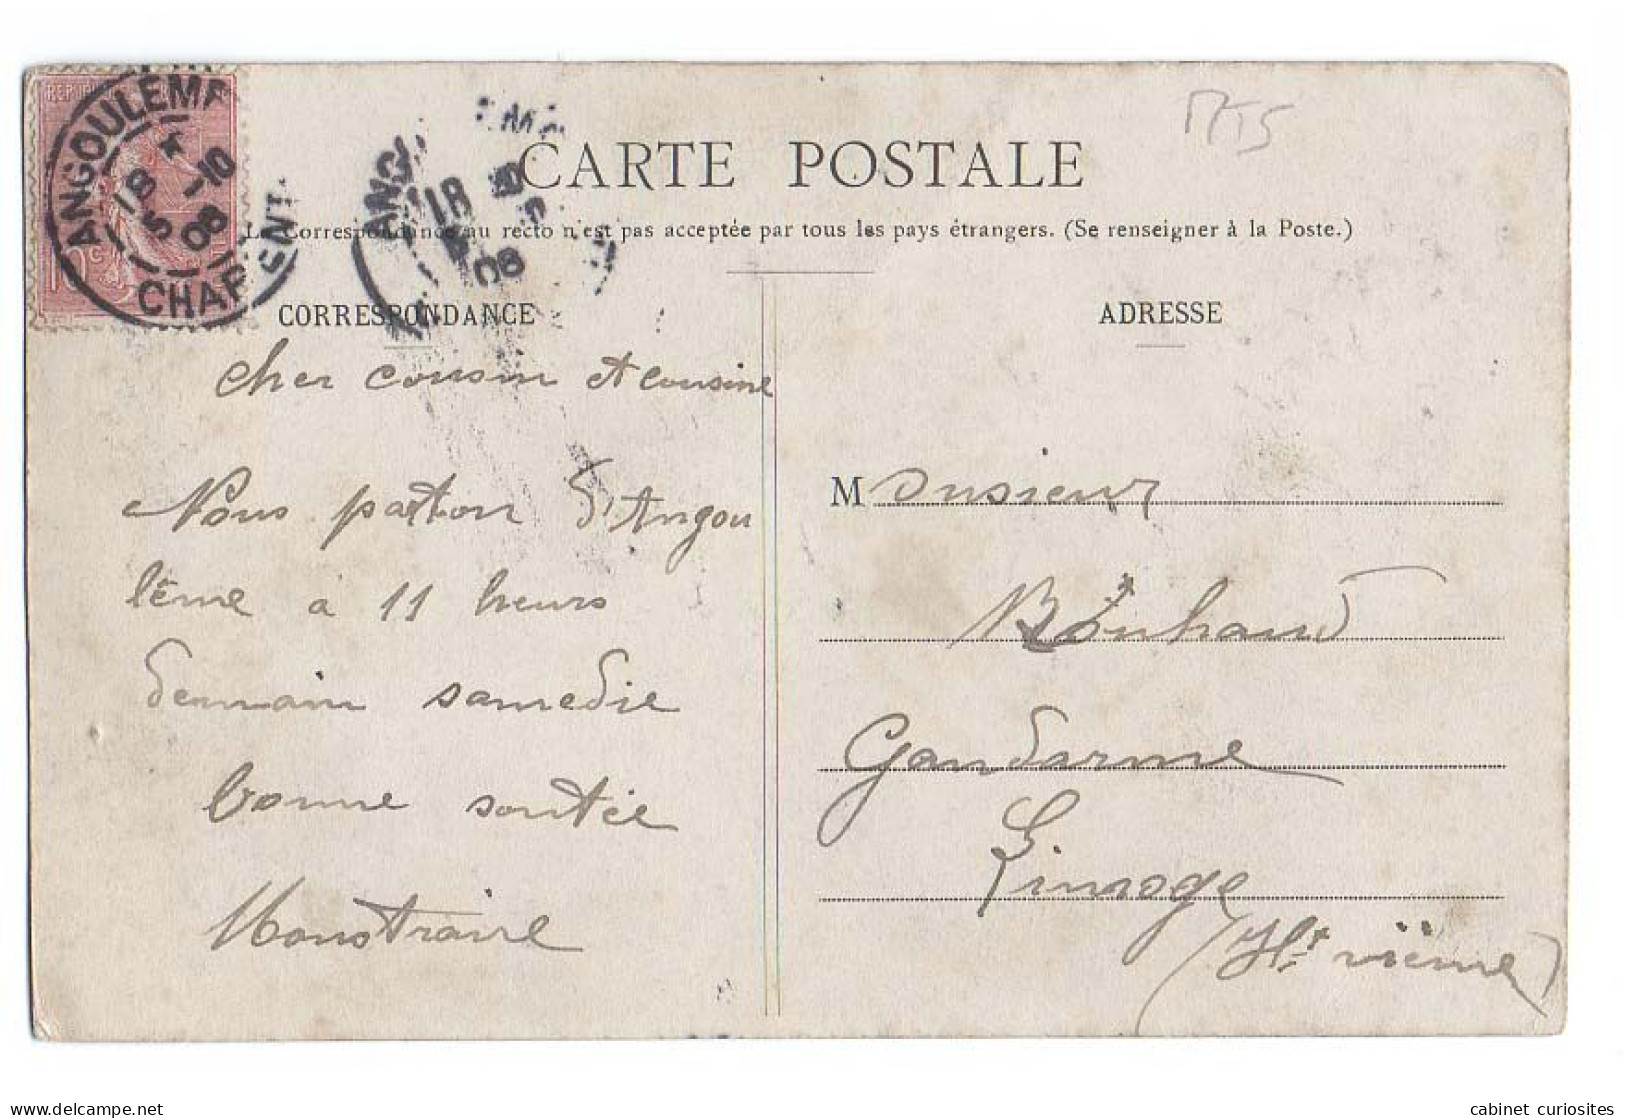 REPU
10c
ANGOULEME
18
5 -10
08
CHARENTE
ANG EME
18
08
CARTE POSTALE
La Correspondance au recto n'est pas acceptée par tous les pays étrangers. (Se renseigner à la Poste.)
CORRESPONDANCE
cher cousin et cousine
Nous partton d'Angou
lême a 11 heurs
demain samedie
bonne santée
ADRESSE
Monsieur
Bonhaud
Gandarme
Limoge
(Ht vième)
cabinet_curiosites